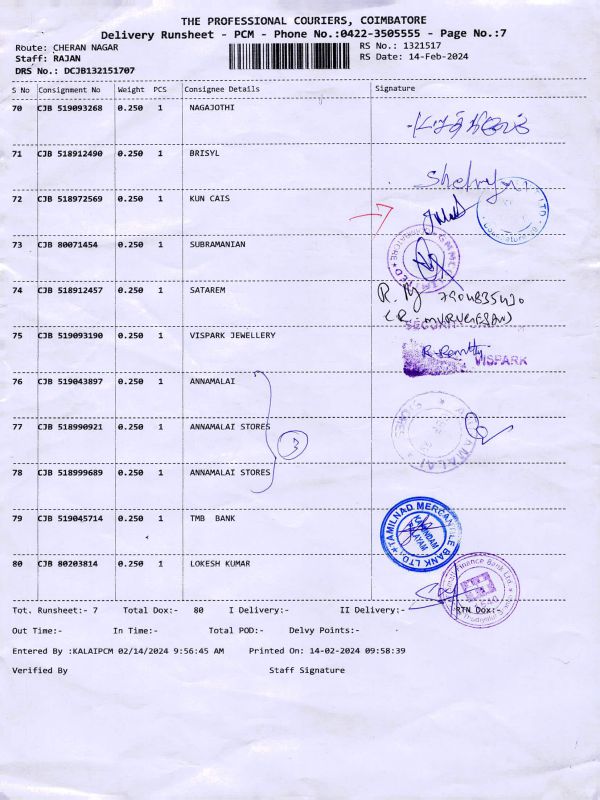 THE PROFESSIONAL COURIERS, COIMBATORE
Delivery Runsheet - PCM - Phone No.:0422-3505555 - Page No.:7
Route: CHERAN NAGAR RS No.: 1321517
Staff: RAJAN RS Date: 14-Feb-2024
DRS No.: DCJB132151707
S No Consignment No Weight PCS Consignee Details Signature
70 CJB 519093268 0.250 1 NAGAJOTHI
71 CJB 518912490 0.250 1 BRISYL
72 CJB 518972569 0.250 1 KUN CAIS
73 CJB 80071454 0.250 1 SUBRAMANIAN
74 CJB 518912457 0.250 1 SATAREM
R.
(R. MURUGESAN)
75 CJB 519093190 0.250 1 VISPARK JEWELLERY
SECURITY
VISPARK
76 CJB 519043897 0.250 1 ANNAMALAI
77 CJB 518990921 0.250 1 ANNAMALAI STORES
3
ANNAMALAI
78 CJB 518999689 0.250 1 ANNAMALAI STORES
79 CJB 519045714 0.250 1 TMB BANK
TAMILNAD MERCANTILE BANK LTD.
80 CJB 80203814 0.250 1 LOKESH KUMAR
Finance Bank Ltd.
Tot. Runsheet:- 7 Total Dox:- 80 I Delivery:- II Delivery:- RTN Dox:-
Out Time:- In Time:- Total POD:- Delvy Points:-
Entered By :KALAIPCM 02/14/2024 9:56:45 AM Printed On: 14-02-2024 09:58:39
Verified By Staff Signature